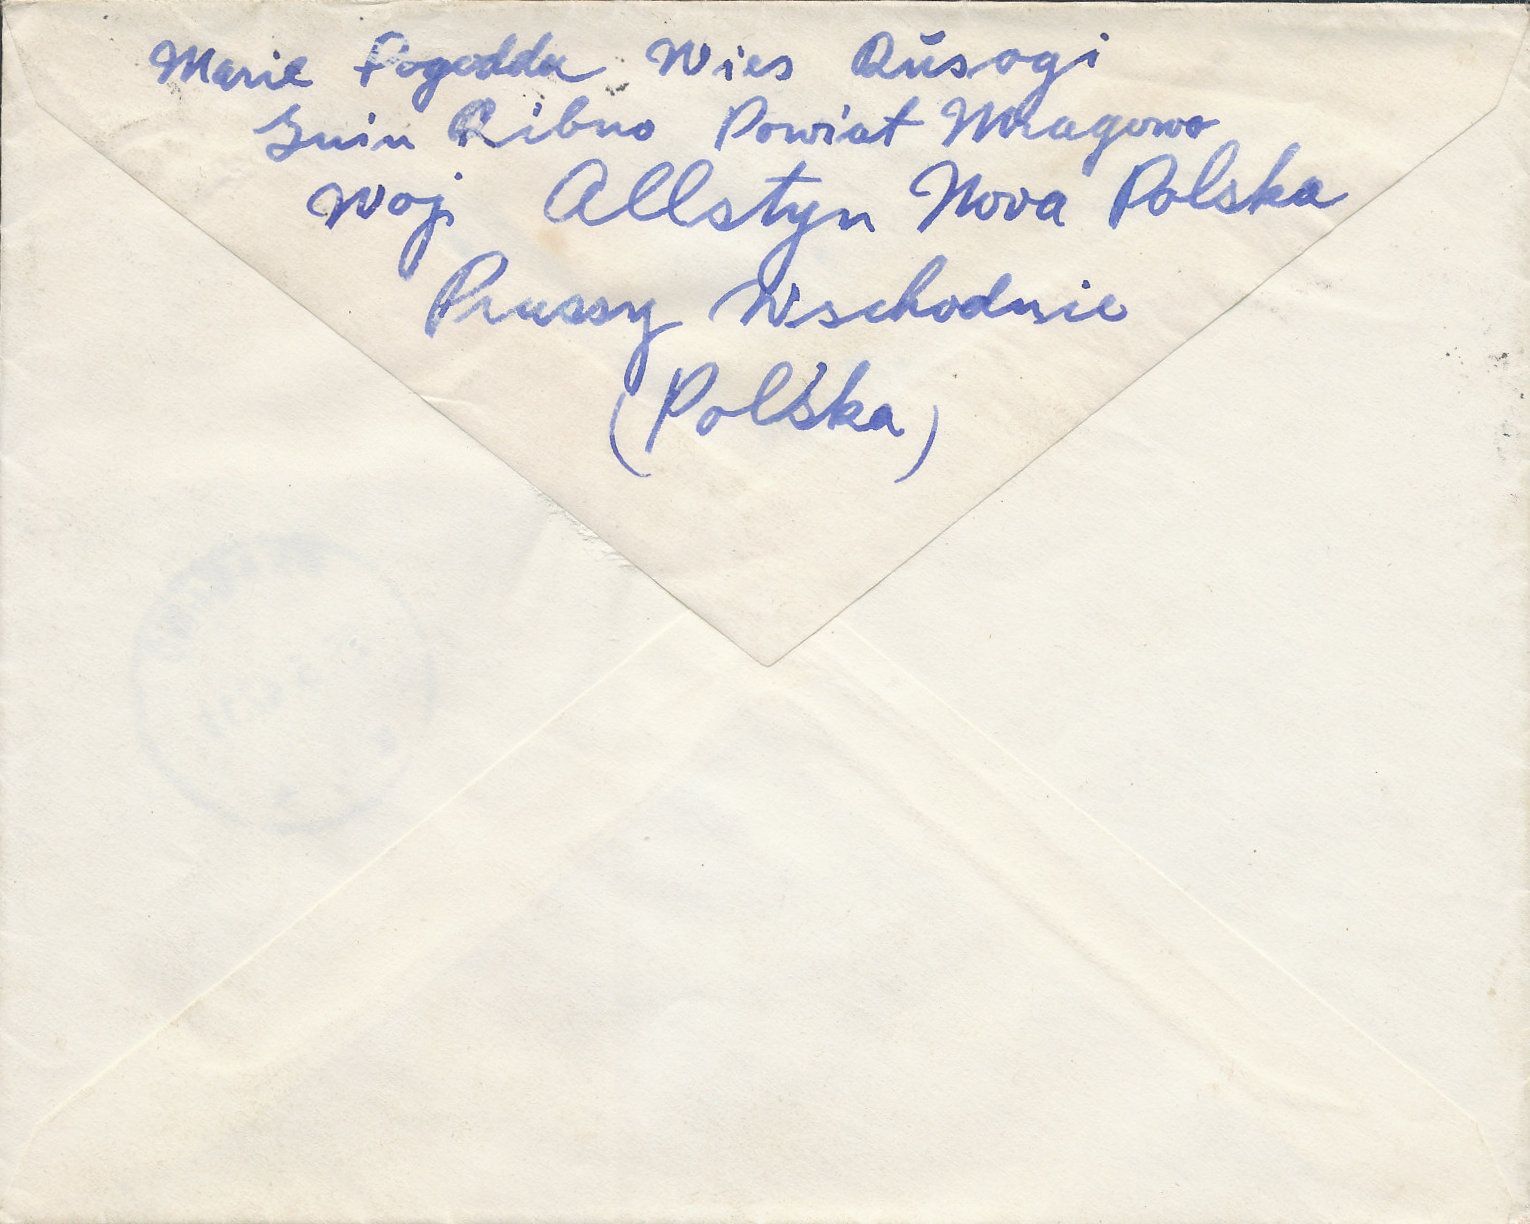 Marie Pogodda Wies Rŭsogi
Gmin Ribno Powiat Mragowo
Woj Allstyn Nova Polska
Prussy Wschodnie
(Polska)